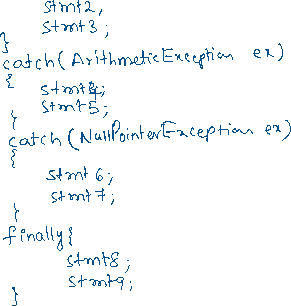 stmt2,
stmt3;
}
catch(ArithmeticException ex)
{
stmt4;
stmt5;
}
catch(NullPointerException ex)
{
stmt6;
stmt7;
}
finally{
stmt8;
stmt9;
}